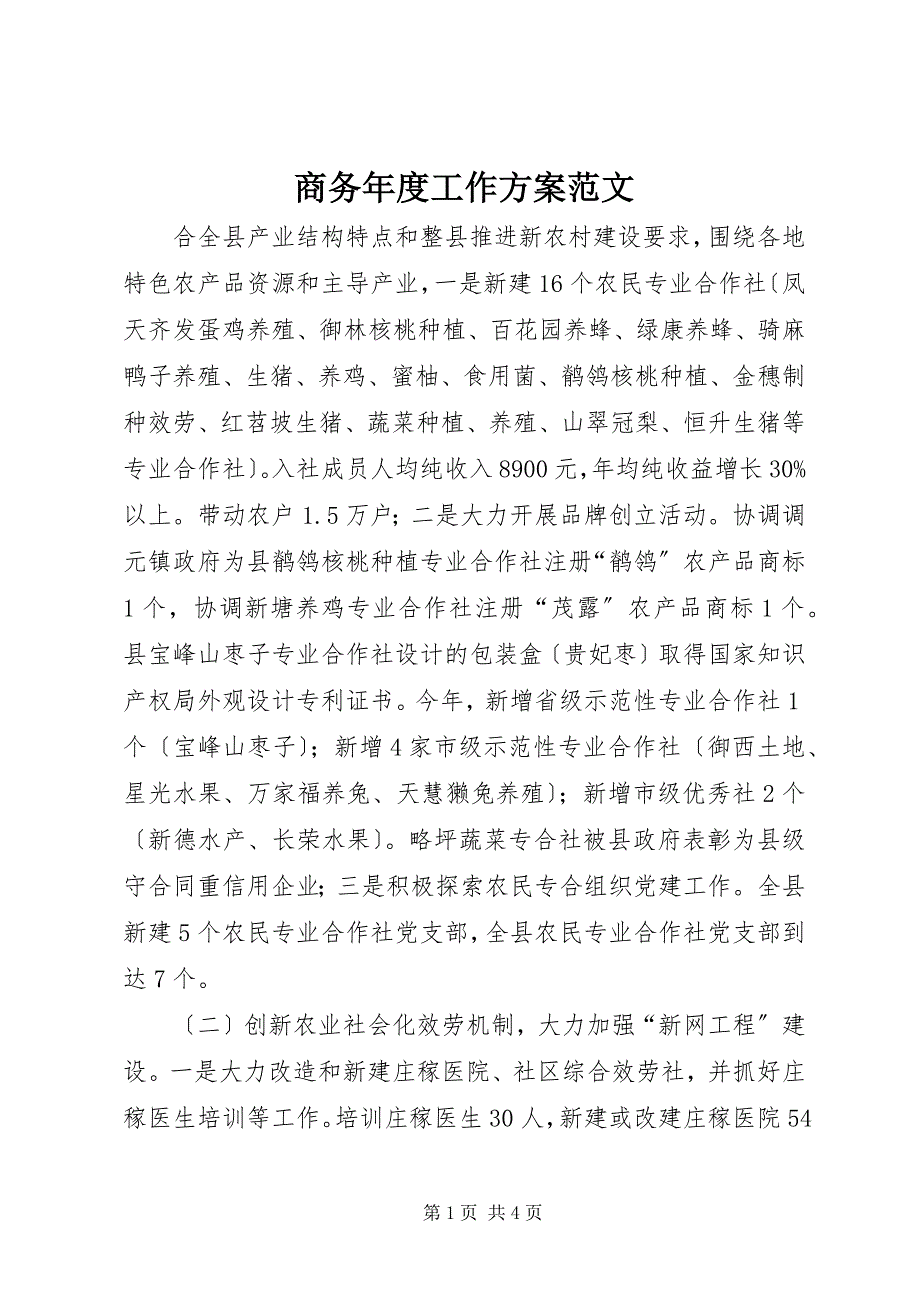 商务年度工作方案范文
合全县产业结构特点和整县推进新农村建设要求，围绕各地
特色农产品资源和主导产业，一是新建 16 个农民专业合作社〔凤
天齐发蛋鸡养殖、御林核桃种植、百花园养蜂、绿康养蜂、骑麻
鸭子养殖、生猪、养鸡、蜜柚、食用菌、鹡鸰核桃种植、金穗制
种效劳、红苕坡生猪、蔬菜种植、养殖、山翠冠梨、恒升生猪等
专业合作社〕。入社成员人均纯收入 8900 元，年均纯收益增长 30%
以上。带动农户 1.5 万户；二是大力开展品牌创立活动。协调调
元镇政府为县鹡鸰核桃种植专业合作社注册“鹡鸰〞农产品商标
1 个，协调新塘养鸡专业合作社注册“茂露〞农产品商标 1 个。
县宝峰山枣子专业合作社设计的包装盒〔贵妃枣〕取得国家知识
产权局外观设计专利证书。今年，新增省级示范性专业合作社 1
个〔宝峰山枣子〕；新增 4 家市级示范性专业合作社〔御西土地、
星光水果、万家福养兔、天慧獭兔养殖〕；新增市级优秀社 2 个
〔新德水产、长荣水果〕。略坪蔬菜专合社被县政府表彰为县级
守合同重信用企业；三是积极探索农民专合组织党建工作。全县
新建 5 个农民专业合作社党支部，全县农民专业合作社党支部到
达 7 个。
〔二〕创新农业社会化效劳机制，大力加强“新网工程〞建
设。一是大力改造和新建庄稼医院、社区综合效劳社，并抓好庄
稼医生培训等工作。培训庄稼医生 30 人，新建或改建庄稼医院 54
第 1 页 共 4 页